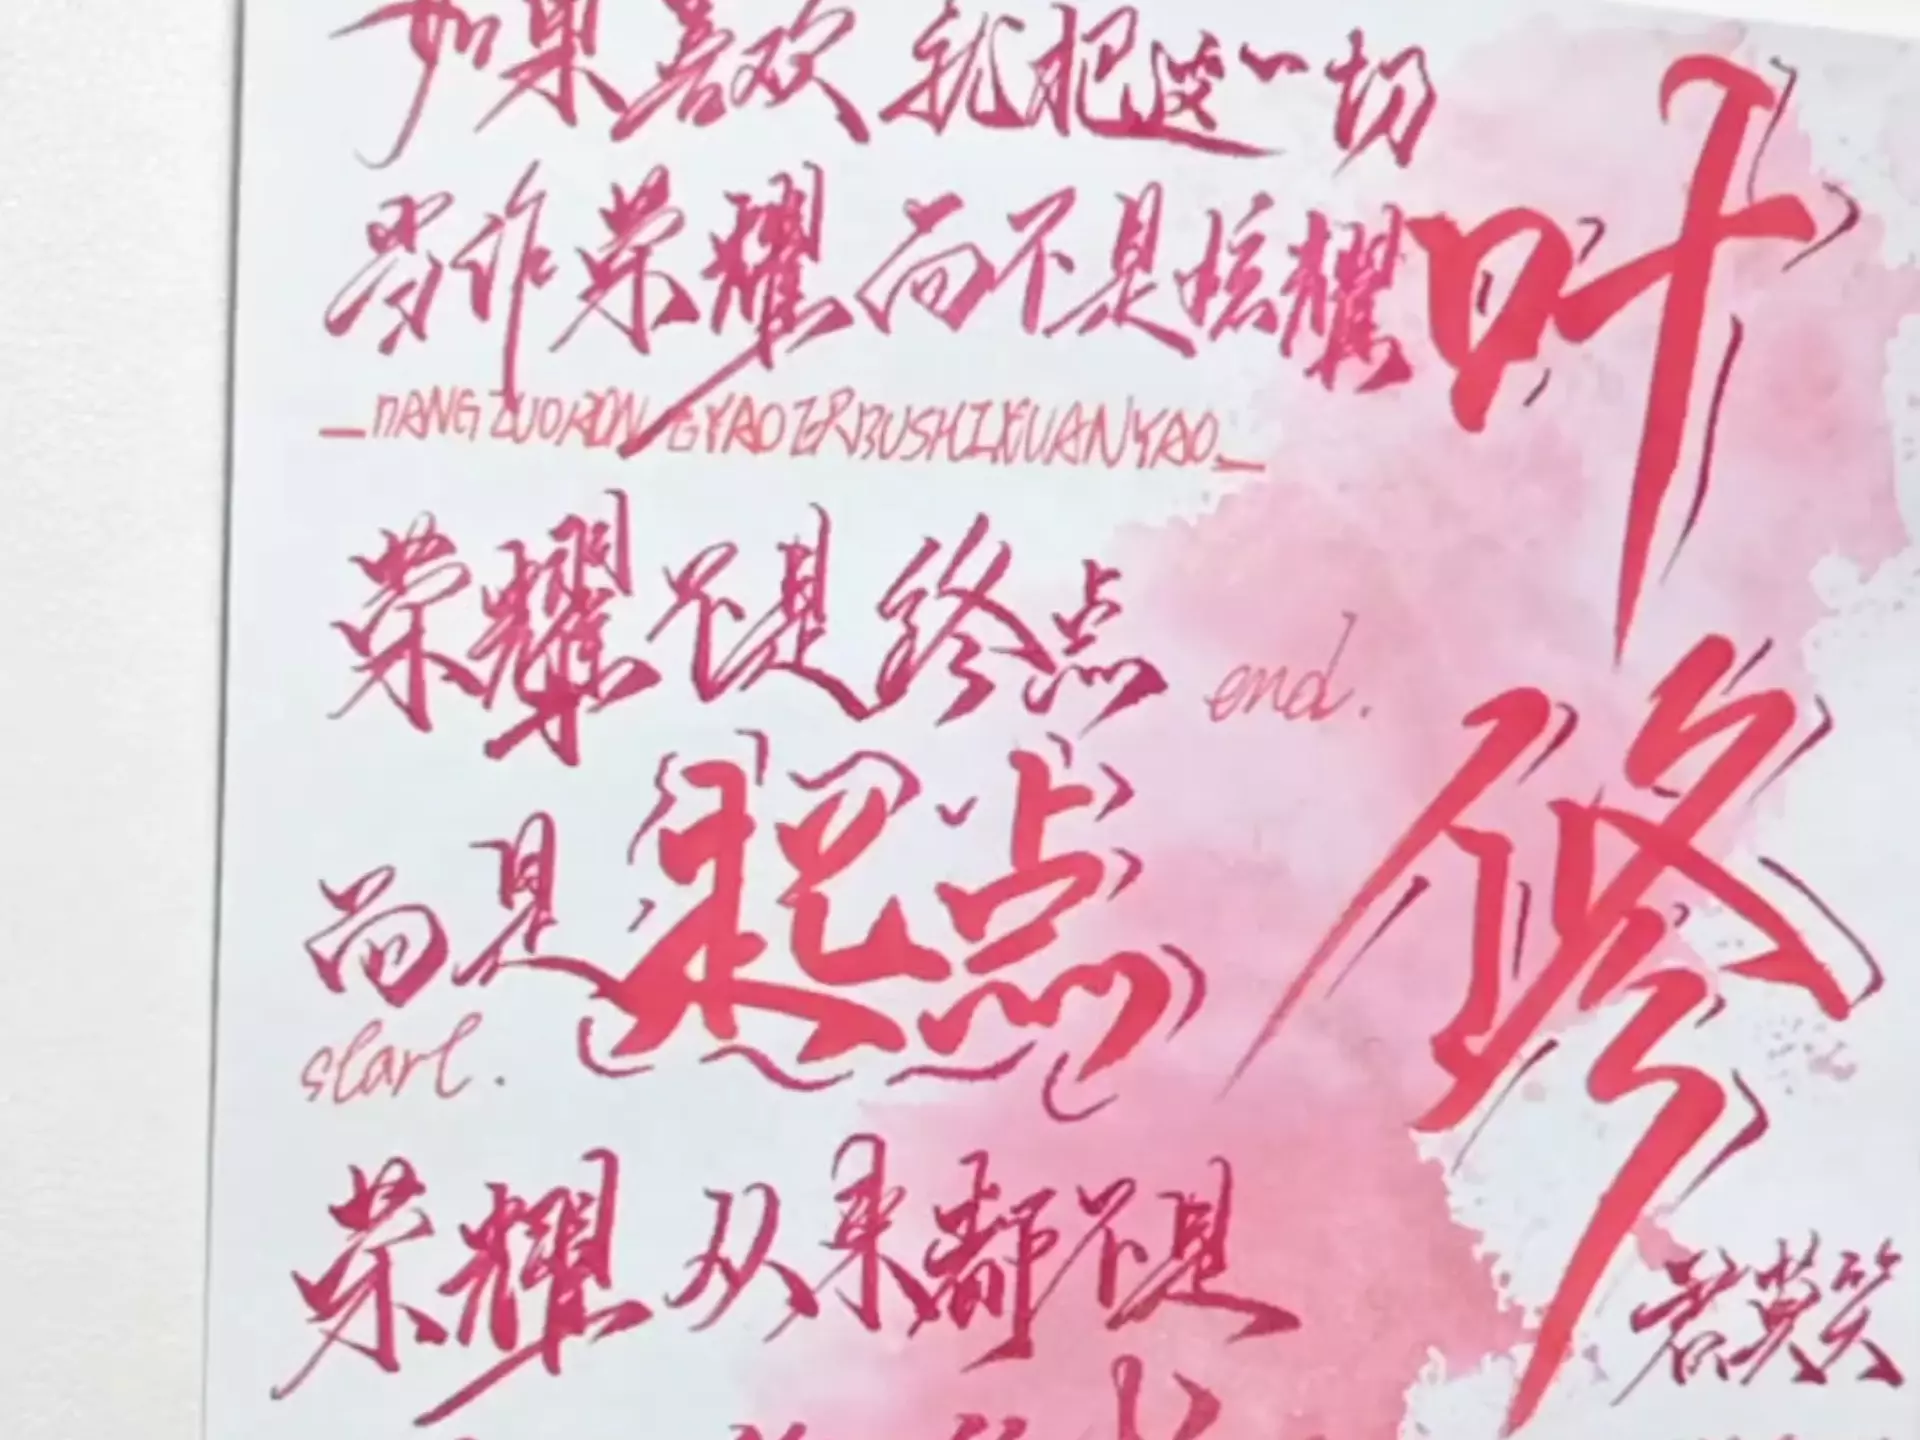 如果喜欢 就把这一切
当作荣耀 而不是炫耀
DANGZUORONGYAOERBUSHIXUANYAO
荣耀不是终点 end.
而是起点
start.
荣耀从来都不是
叶修
君莫笑